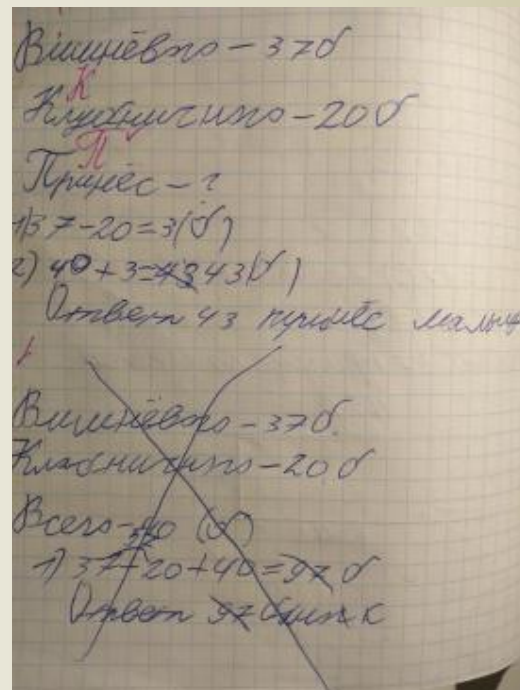 Вишнёвого – 37б
К
Клубничного – 20б
П
Принёс – ?
1) 37-20=3(б)
2) 40+3=43 43(б)
Ответ 43 принёс малыш
Вишнёвого – 37б.
Клабничного – 20б
Всего – 40 (б)
1) 37+20+40=97б
Ответ 97